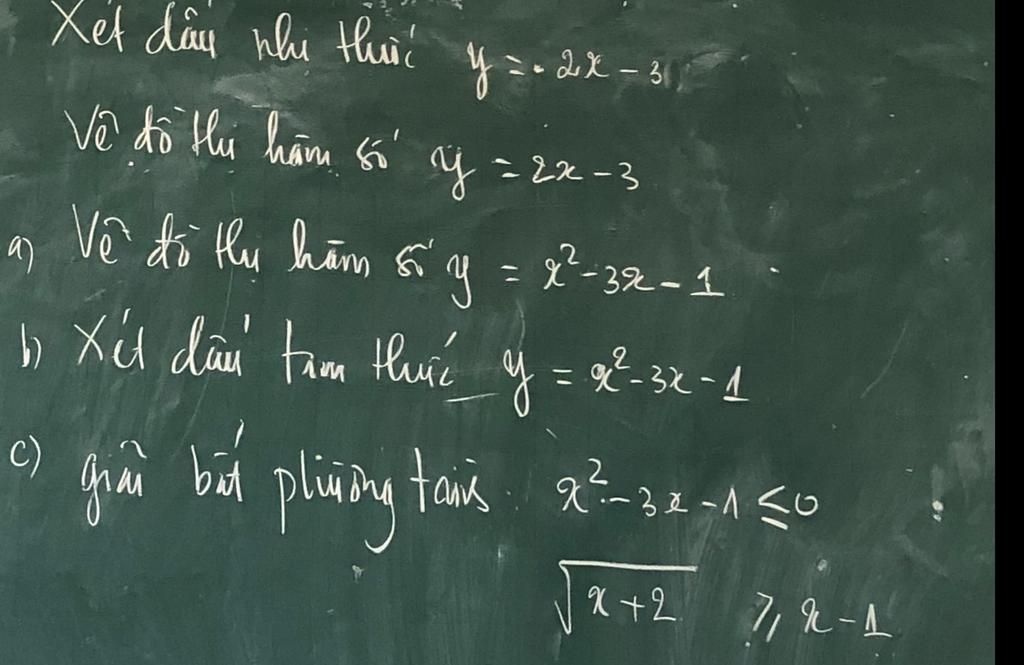 Xét dấu nhị thức y = -2x - 3
Vẽ đồ thị hàm số y = 2x - 3
a) Vẽ đồ thị hàm số y = x² - 3x - 1
b) Xét dấu tam thức y = x² - 3x - 1
c) giải bất phương trình: x² - 3x - 1 ≤ 0
√(x + 2) ≥ x - 1